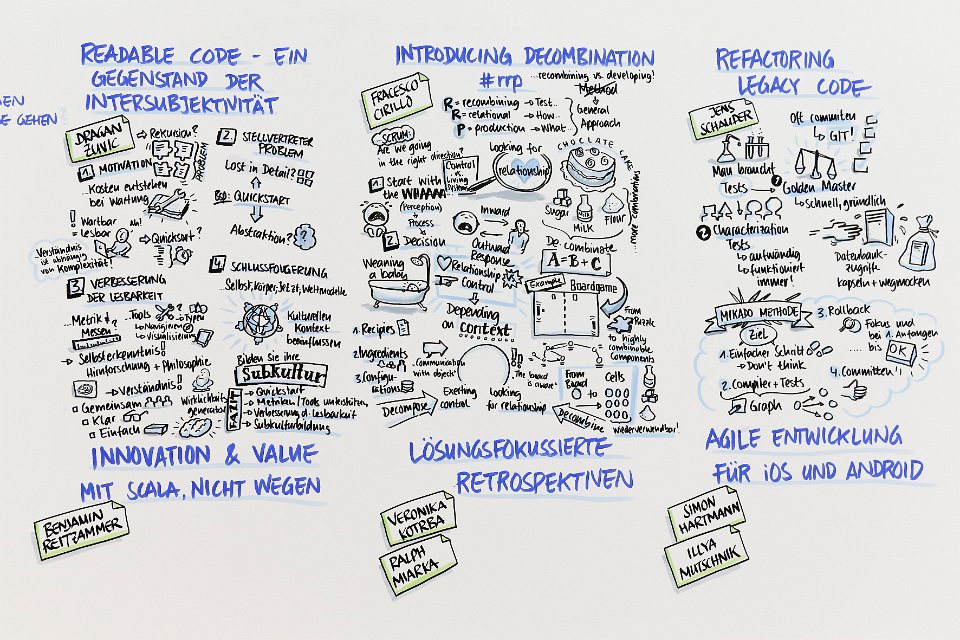 READABLE CODE - EIN
GEGENSTAND DER
INTERSUBJEKTIVITÄT
GEHEN
DRAGAN
ZUNIC
→ Rekursion?
PROBLEM
1. MOTIVATION
..Kosten entstehen
bei Wartung
! Wartbar
= lesbar
Ah!
Verständnis
ist abhängig
von Komplexität!
→ Quicksort?
2. STELLVERTRETER
PROBLEM
Lost in Detail?
BSP: QUICKSTART
Abstraktion?
3. VERBESSERUNG
DER LESBARKEIT
...Metrik &
Messen
..Tools
→ Typen
↳ Navigieren
↳ visualisieren
→ Selbsterkenntnis!
Hirnforschung + Philosophie
→ Verständnis!
Gemeinsam
Klar
Einfach
Wirklichkeits
generator
4. SCHLUSSFOLGERUNG
..Selbst, Körper, Jetzt, Weltmodelle
Kulturellen
Kontext
beeinflussen
Bilden Sie ihre
Subkultur
FAZIT
→ Quickstart
→ Metriken/Tools unterstützen
→ Verbesserung d. Lesbarkeit
→ Subkulturbildung
INNOVATION & VALUE
MIT SCALA, NICHT WEGEN
BENJAMIN
REITZAMMER
INTRODUCING DECOMBINATION
#rrp
...recombining vs. developing!
FRACESCO
CIRILLO
R = recombining → Test..
R = relational → How..
P = production → What..
Method
General
Approach
SCRUM:
Are we going
in the right direction?
Control
vs
Living
System
Looking for
relationship
CHOCLATE CAKE
Sugar
MILK
Flour
more combinations
1. Start with
the WHAAAA
(Perception)
Process
2. Decision
Inward
Outward
Response
Relationship
Control
Weaning
a baby
Depending
on context
De-combinate
A-B+C
Example
Boardgame
From
Puzzle
to highly
combinable
Components
1. Recipes
2. Ingredients
3. Configu-
rations
..Communication
with objects"
"The board
is aware"
Decompose
Exerting
control
Looking
for relationship
From Cells
Board to
Decombine
wiederverwendbar!
LÖSUNGSFOKUSSIERTE
RETROSPEKTIVEN
VERONIKA
KOTRBA
RALPH
MIARKA
REFACTORING
LEGACY CODE
JENS
SCHAUDER
Oft commiten
↳ GIT!
Man braucht
Tests
1 Golden Master
↳ schnell, gründlich
2 Characterization
Tests
↳ aufwändig
↳ funktioniert
immer!
Datenbank-
zugriffe
kapseln + wegmocken
MIKADO METHODE
ZIEL
1. Einfacher Schritt
↳ Don't think
2. Compiler + Tests
Graph
3. Rollback
Fokus und
bei 1. Anfangen
bis OK
4. Committen!
AGILE ENTWICKLUNG
FÜR iOS UND ANDROID
SIMON
HARTMANN
ILLYA
MUTSCHNIK